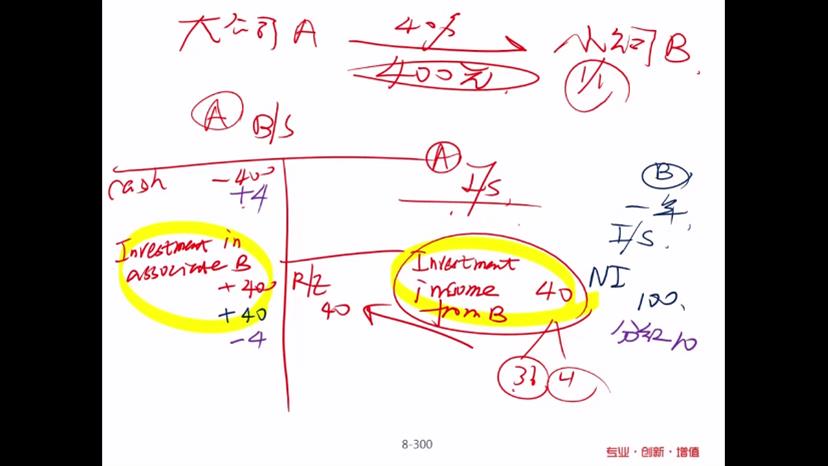 大公司 A 40% 小公司 B
400元 1/1
A B/S
A I/S
cash -400
+4
Investment in
associate B
+400
+40
-4
R/E
40
Investment
income 40
from B
36 4
B
一年
I/S
NI
100
分红 10
8-300
专业·创新·增值